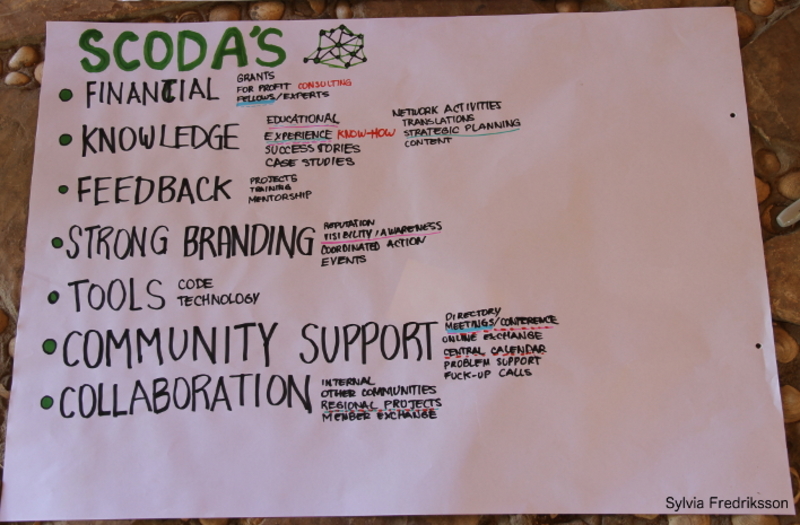 SCODA'S
FINANCIAL
GRANTS
FOR PROFIT CONSULTING
FELLOWS/EXPERTS
KNOWLEDGE
EDUCATIONAL
EXPERIENCE KNOW-HOW
SUCCESS STORIES
CASE STUDIES
NETWORK ACTIVITIES
TRANSLATIONS
STRATEGIC PLANNING
CONTENT
FEEDBACK
PROJECTS
TRAINING
MENTORSHIP
STRONG BRANDING
REPUTATION
VISIBILITY/AWARENESS
COORDINATED ACTION
EVENTS
TOOLS
CODE
TECHNOLOGY
COMMUNITY SUPPORT
DIRECTORY
MEETINGS/CONFERENCE
ONLINE EXCHANGE
CENTRAL CALENDAR
PROBLEM SUPPORT
FUCK-UP CALLS
COLLABORATION
INTERNAL
OTHER COMMUNITIES
REGIONAL PROJECTS
MEMBER EXCHANGE
Sylvia Fredriksson